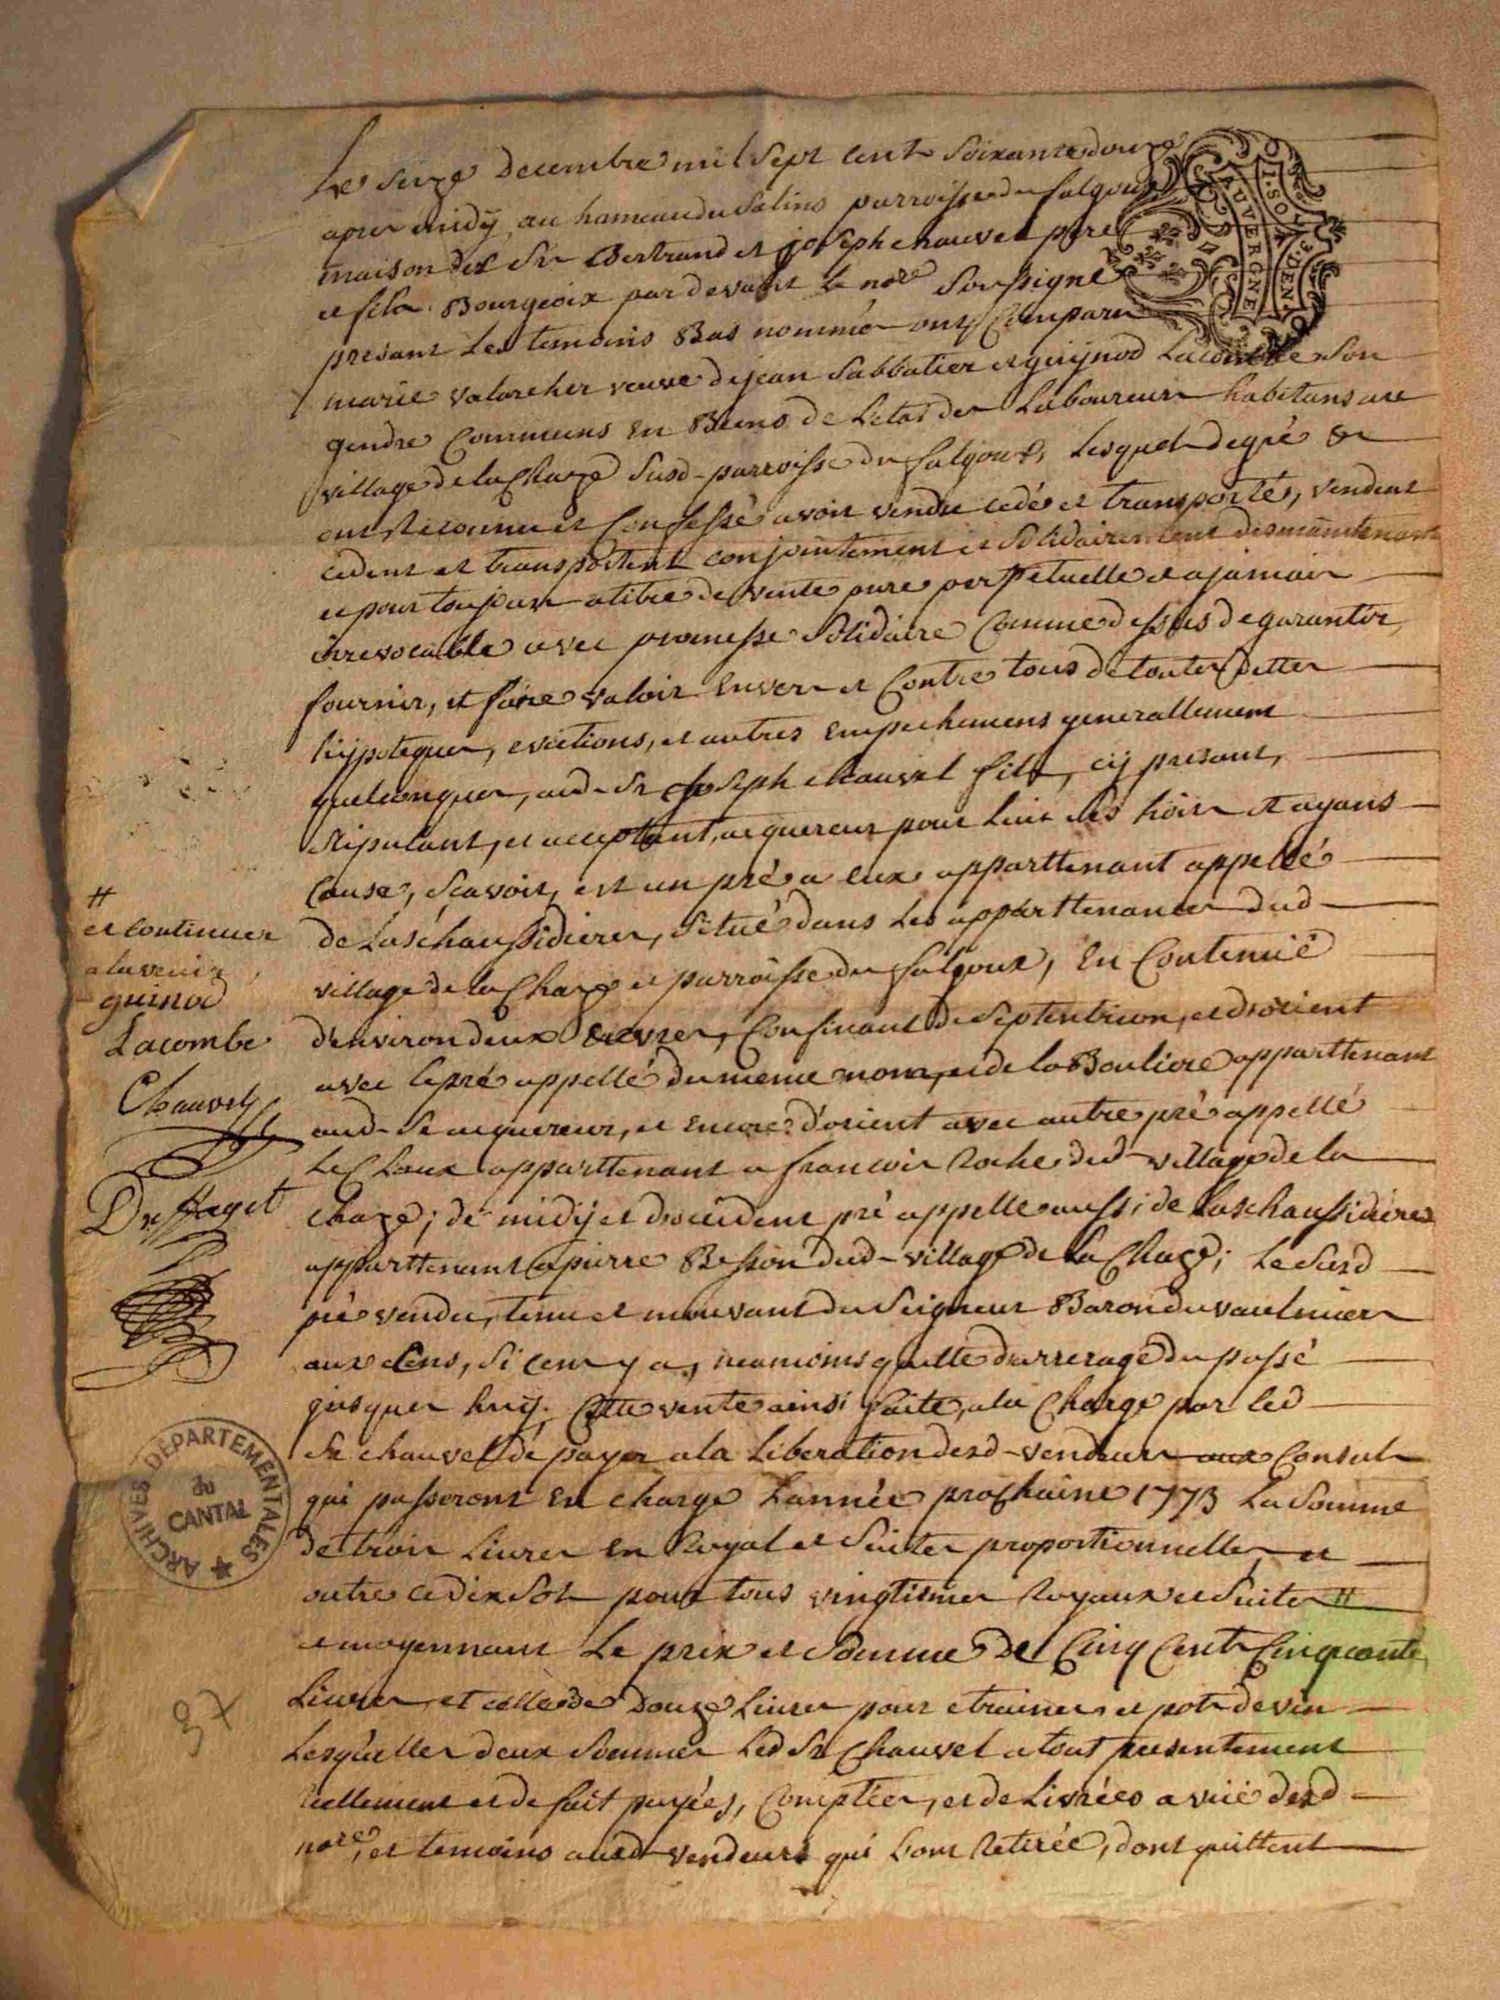 Le seize decembre mil sept cent soixante douze
apres midy, au hameau du Salins parroisse du falgoux
maison des Sr Bertrand et joseph chauvel pere
et fils Bourgeoix par devant le nore Soussigné
presant Les temoins Bas nommés ont Comparu
marie valarcher veuve de jean Sabbatier et guijnod Lacombe Son
gendre Communs En Biens de Letat des Laboureurs habitans au
village de la Chaze susd- parroisse du falgoux, Lesquels de gré
ont Reconnu et Confessé avoir vendu cedé et transporté, vendent
cedent et transportent conjointement et solidairement des maintenant
et pour toujours a titre de vente pure perpetuelle et a jamais
irrevocable avec promesse solidaire Comme dessus de garantir,
fournir, et faire valoir Envers et Contre tous de toutes dettes
hijpoteques, evictions, et autres Empechemens generallement
quelconques, aud- Sr joseph chauvel fils, cij presant,
stipulant, et acceptant, acquereur pour luij ses hoirs et ayans
Cause, scavoir, est un pré a eux appartenant appellé
de Laschaussidieres, situé dans Les appartenances dud-
village de la Chaze et parroisse du falgoux, En Contenue
d'environ deux œuvres, Confinant de septentrion, et d'orient
avec le pré appellé du meme nom, et de la Bouliere appartenant
aud- Sr acquereur, et encore d'orient avec autre pré appellé
Le Claux appartenant a francois Roche dud- village de la
Chaze; de midij et d'occident pré appelle aussi de Laschaussidieres
appartenant a pierre Besson dud- village de La Chaze; Le susd
pré vendu, tenu et mouvant du Seigneur Baron du vaulmier
aux Cens, si cens y a, neanmoins quitte d'arrerage du passé
jusques huij. Cette vente ainsi faite, a la Charge par led
Sr chauvel de payer a la Liberation desd- vendeurs aux Consuls
qui passeront En charge Lannée prochaine 1773 La Somme
de trois Livres En Royal et Suites proportionnelles et
outre ce dix sols pour tous vingtiemes Royaux et Suites #
et moyennant Le prix et Somme de Cinq Cents Cinquante
Livres, et celle de Douze Livres pour etraines et pots de vin
Lesquelles deux sommes Led Sr Chauvel a tout presentement
reellement et de fait payées, Comptées, et delivrées a vue desd-
nore, et temoins ausd- vendeurs qui L'ont Retirée, dont quittent
#
et continuer
a lavenir
guinod
Lacombe
Chauvel
Duffayet
AUVERGNE
I.SOL
DEN
ARCHIVES DÉPARTEMENTALES
du
CANTAL
37